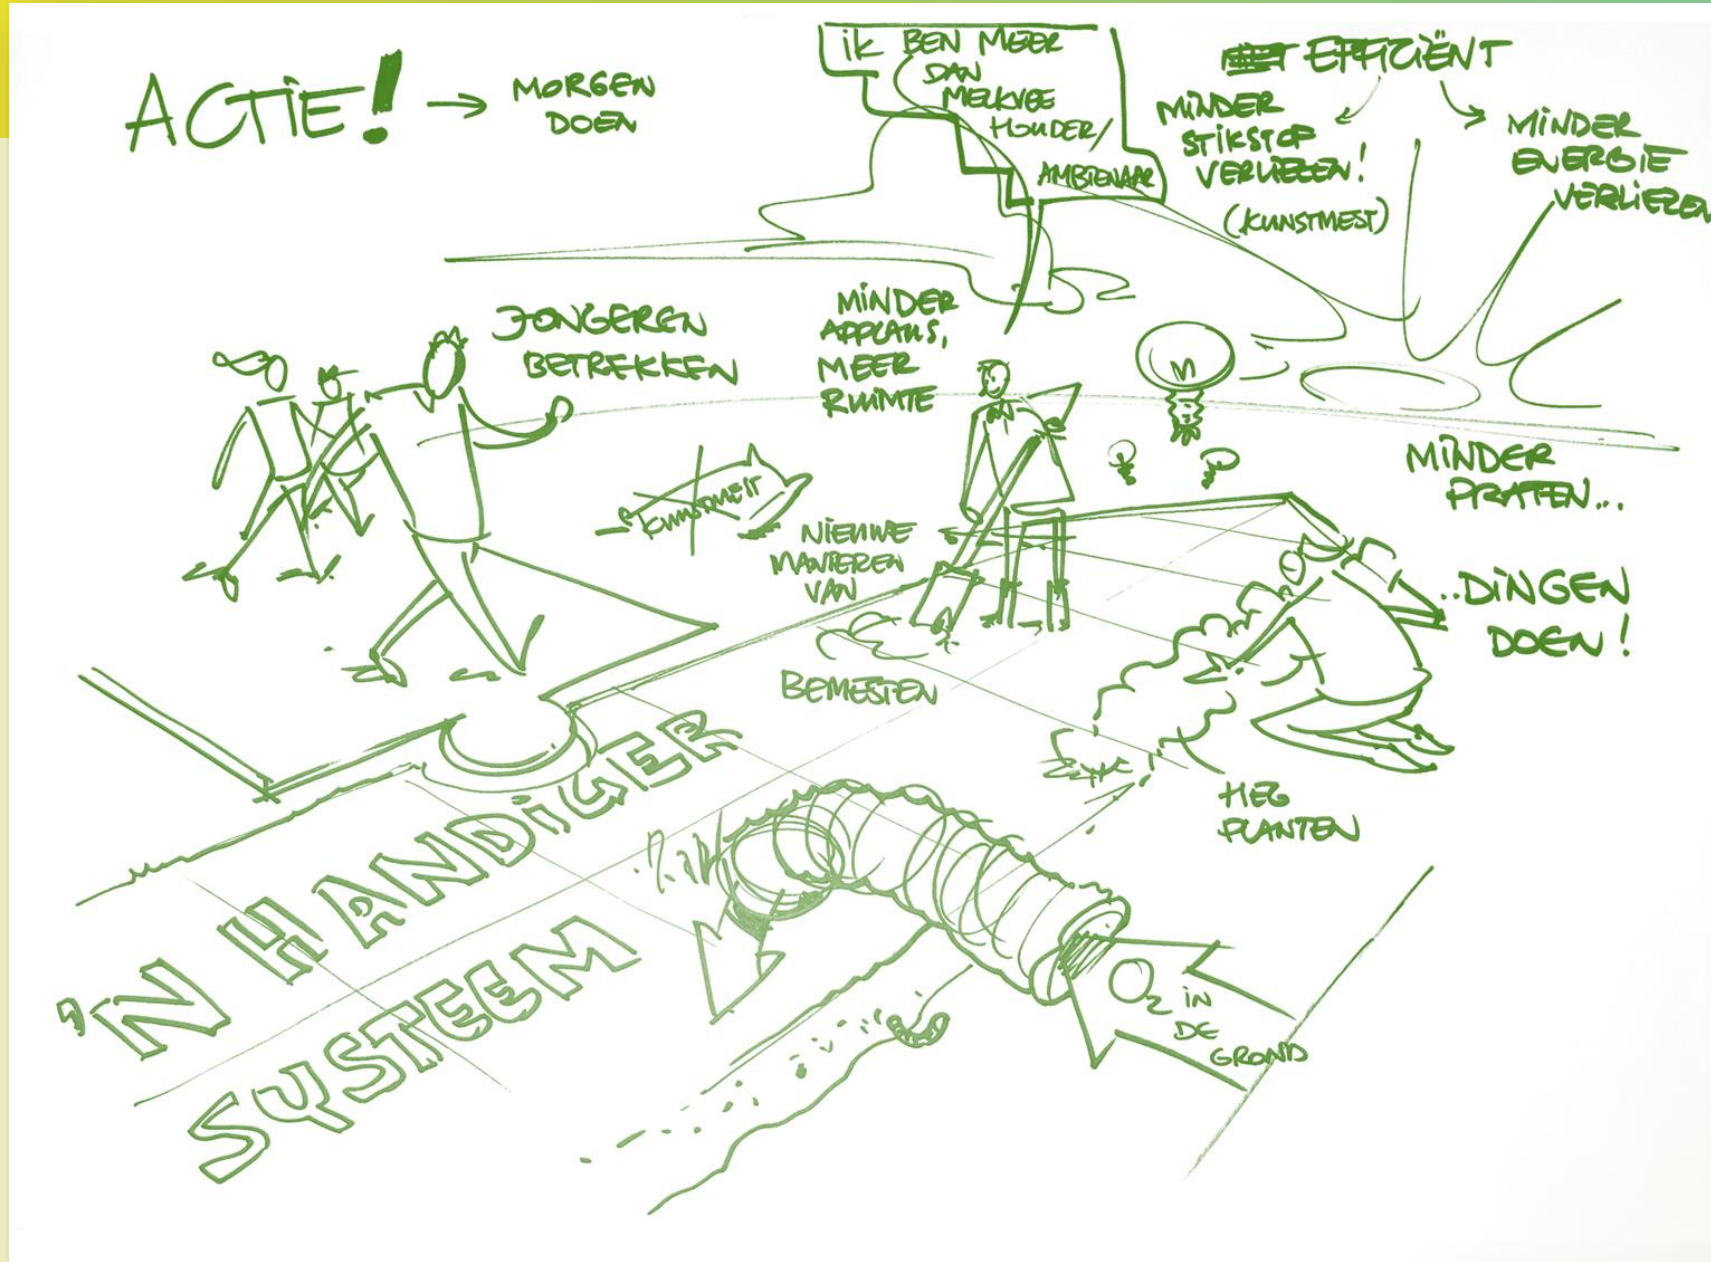 ACTIE! → MORGEN
DOEN
iK BEN MEER
DAN
MELKVEE
HOUDER/
AMBTENAAR
EFFICIËNT
MINDER
STIKSTOF
VERLIEZEN!
(KUNSTMEST)
MINDER
ENERGIE
VERLIEZEN
JONGEREN
BETREKKEN
MINDER
APPLAUS,
MEER
RUIMTE
KUNSTMEST
NIEUWE
MANIEREN
VAN
BEMESTEN
MINDER
PRATEN...
..DINGEN
DOEN!
HEG
PLANTEN
'N HANDiGER
SYSTEEM
O2 iN
DE
GROND